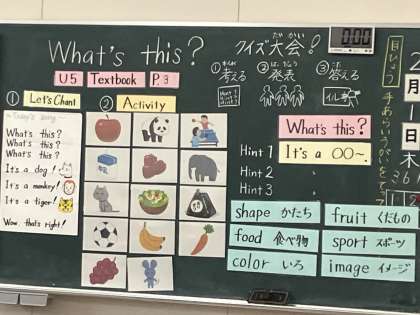 What's this?
クイズ大会!
だい かい
U5 Textbook P.3
① 考える
② 発表
③ 答える
0:00
① Let's Chant
② Activity
What's this?
What's this?
What's this?
It's a dog!
It's a monkey!
It's a tiger!
Wow, that's right!
What's this?
It's a OO~.
Hint 1
Hint 2
Hint 3
shape かたち
fruit くだもの
food 食べ物
sport スポーツ
color いろ
image イメージ
目ひょう
2
月
1
日
木